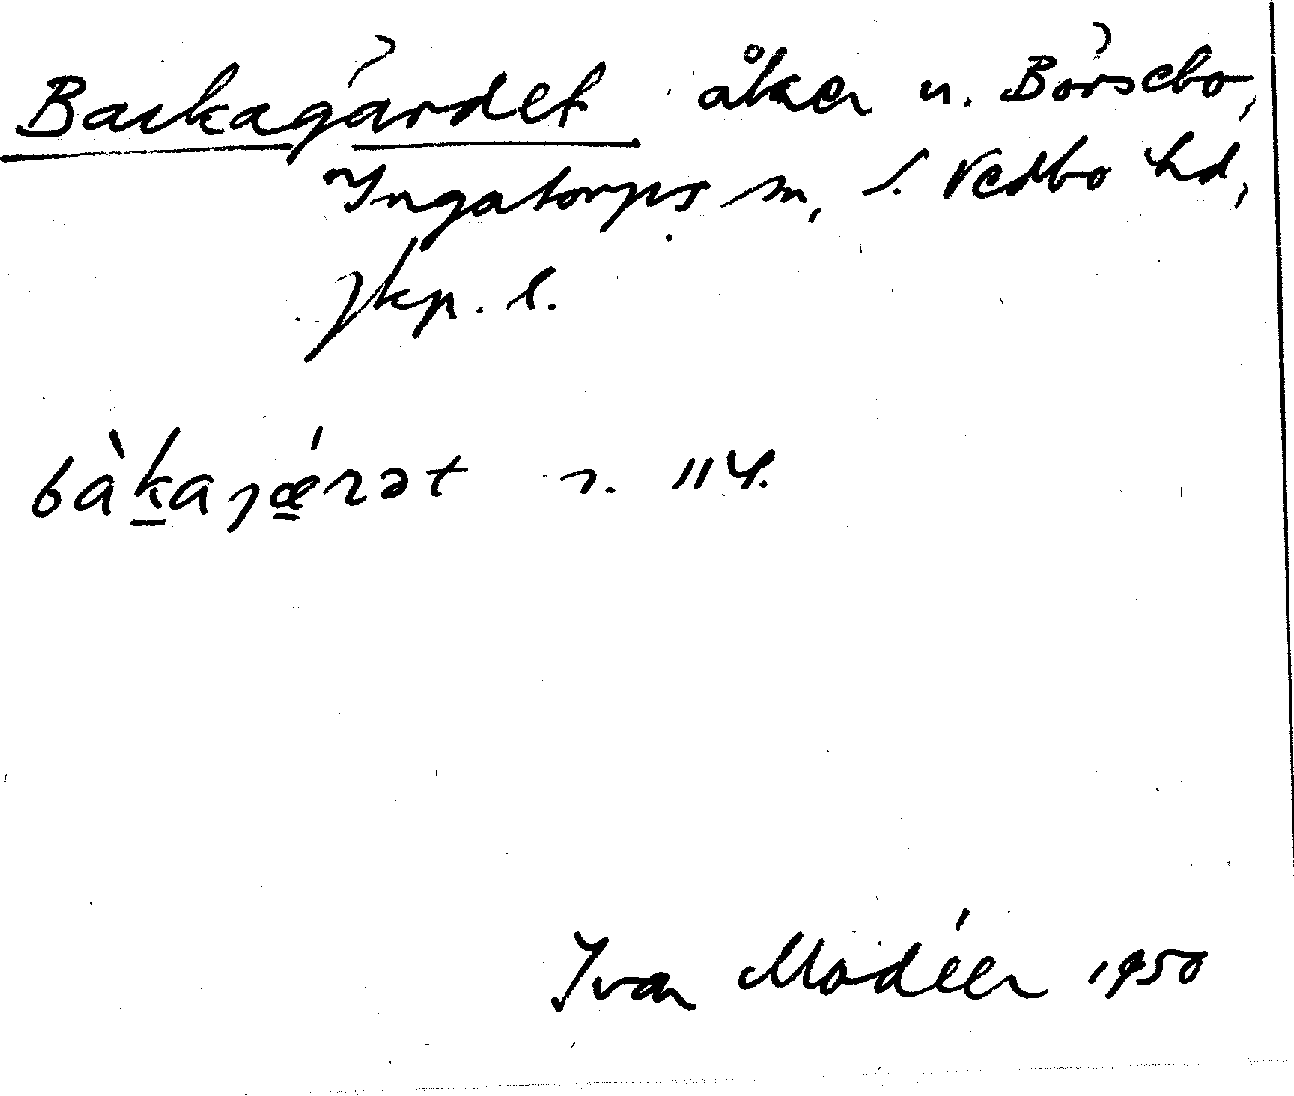 Backagärdet åker u. Börsebo,
Ingatorps sn, S. Vedbo hd,
Jkp. l.
bàka̱jǽrət s. 114.
Ivar Modéer 1950